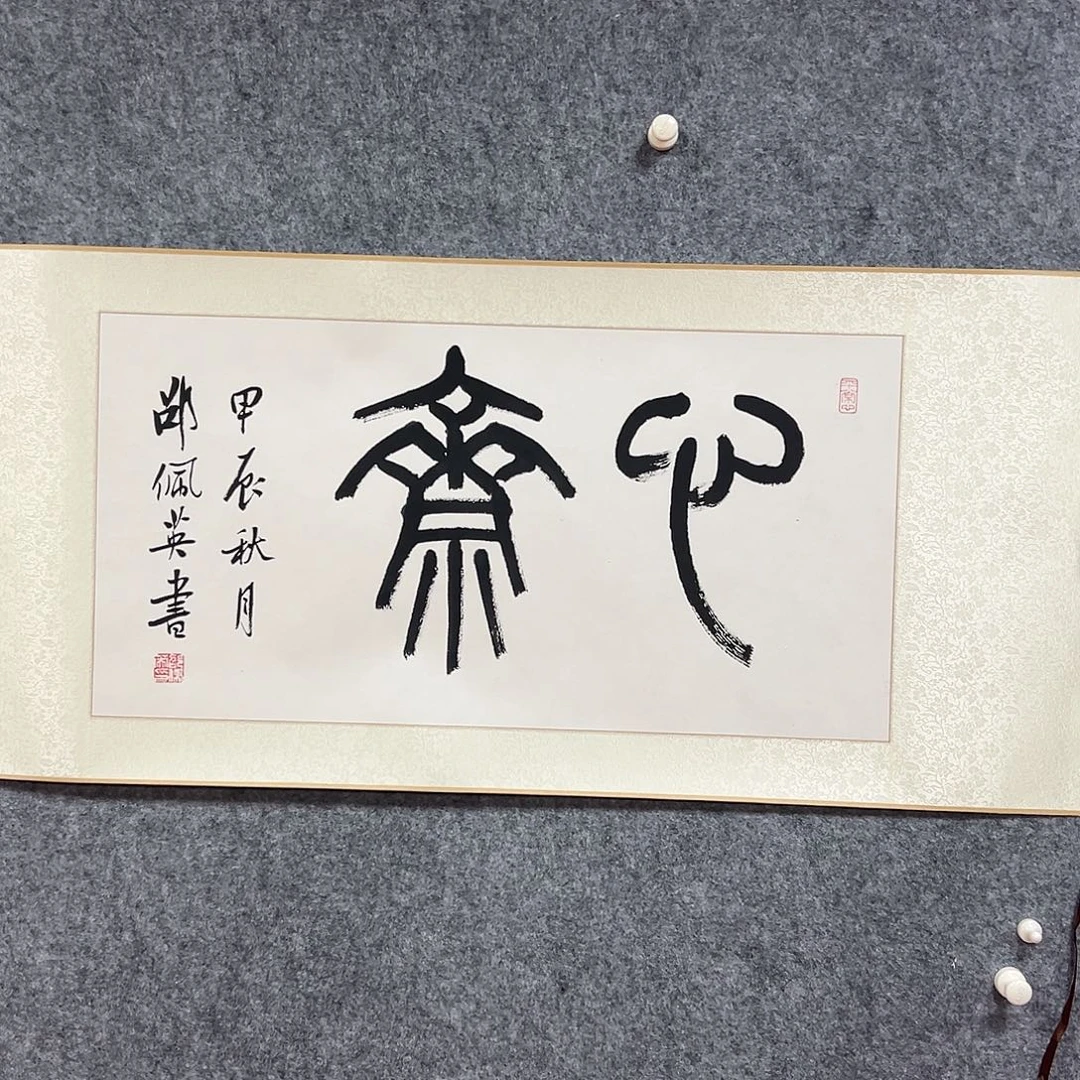 心齋
甲辰秋月
邵佩英書